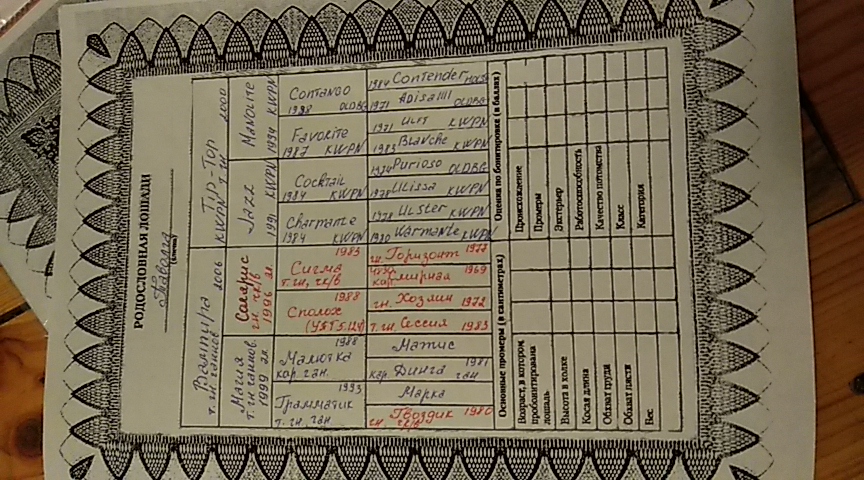 РОДОСЛОВНАЯ ЛОШАДИ
(кличка)
Вампира 2006
т. гн. ганнов.
Tip-Top 2000
KWPN т. гн.
Магия
т. гн ганнов.
1999
Сакарис
гн. чк/в
1996
Jazz
1991 KWPN
Manolite
1994 KWPN
Грамматик 1993
т. гн. ган
Малютка 1988
кар. ган.
Сполох 1988
Сигма 1983
т. гн, чк/в
Charmante
1984 KWPN
Cocktail
1984 KWPN
Favorite
1987 KWPN
Contango
OLDBG
Гвоздик 1980
гн. чк/в
Марка
кар. Динга 1981
ган
Матис
т. гн. Сессия 1983
гн. Хозяин 1972
Смирная 1969
кар.
гн. Горизонт 1977
Warmante KWPN
1978 Ulster KWPN
1978 Ulissa KWPN
1974 Purioso OLDBG
1983 Blanche KWPN
1971 Ulft KWPN
1971 OLDBG
1984 Contender
Основные промеры (в сантиметрах)
Возраст, в котором
пробонитирована
лошадь
Высота в холке
Косая длина
Обхват груди
Обхват пясти
Вес
Оценка по бонитировке (в баллах)
Происхождение
Промеры
Экстерьер
Работоспособность
Качество потомства
Класс
Категория